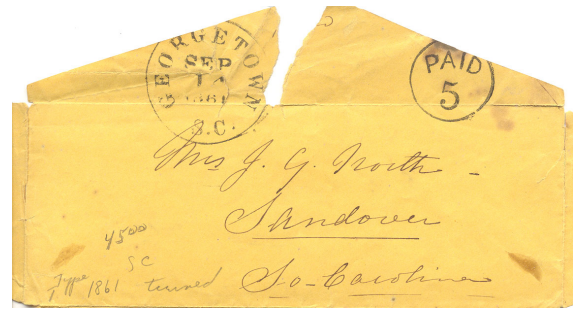 GEORGETOWN
SEP
1861
S.C.
PAID
5
Mrs J. G. North
Sandover
So-Carolina
4500
SC
Type
1861 turned